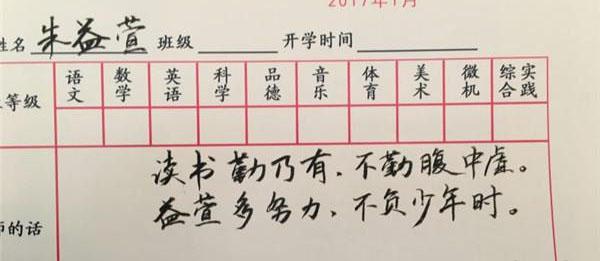 2017年1月
姓名 朱益萱 班级 开学时间
等级 语文 数学 英语 科学 品德 音乐 体育 美术 微机 综合实践
读书勤乃有，不勤腹中虚。
益萱多努力，不负少年时。
师的话